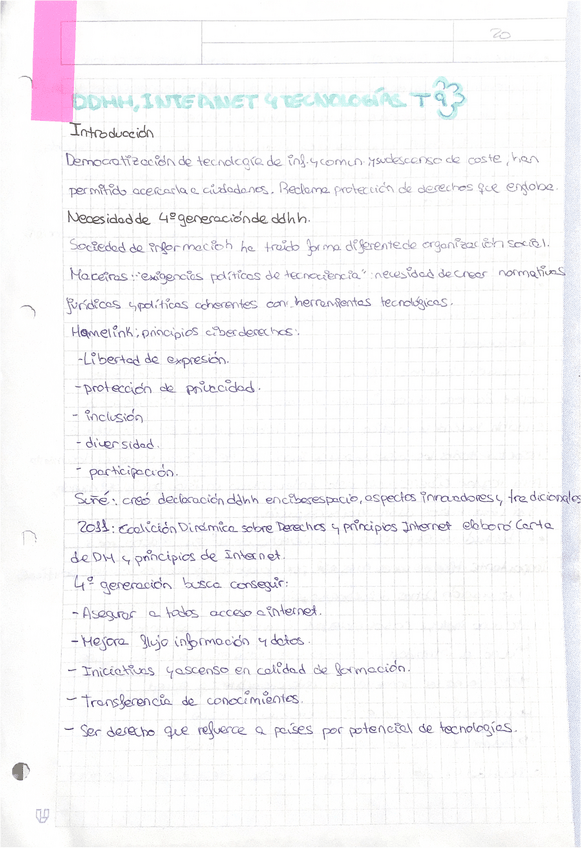 20
DDHH, INTERNET Y TECNOLOGÍAS T9
Introducción
Democratización de tecnología de inf. y comun. y su descenso de coste, han
permitido acercarla a ciudadanos. Reclama protección de derechos que engloba.
Necesidad de 4º generación de ddhh.
Sociedad de información ha traído forma diferente de organización social.
Maceiras: "exigencias políticas de tecnociencia": necesidad de crear normativas
jurídicas y políticas coherentes con herramientas tecnológicas.
Hamelink: principios ciberderechos:
- Libertad de expresión.
- protección de privacidad.
- inclusión
- diversidad.
- participación.
Suñé: creó declaración ddhh en ciberespacio, aspectos innovadores y tradicionales
2011: Coalición Dinámica sobre Derechos y principios Internet elaboró Carta
de DH y principios de Internet.
4º generación busca conseguir:
- Asegurar a todos acceso a internet.
- Mejora flujo información y datos.
- Iniciativas y ascenso en calidad de formación.
- Transferencia de conocimientos.
- Ser derecho que refuerce a países por potencial de tecnologías.